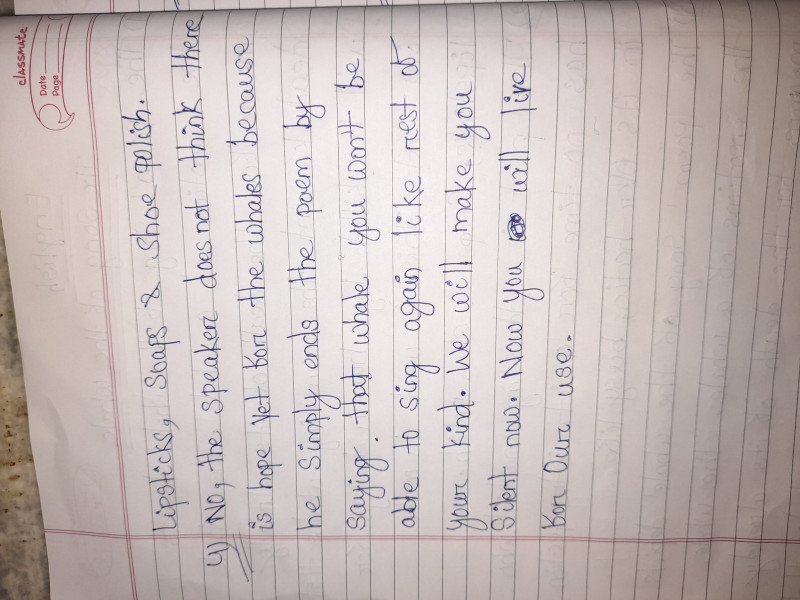 classmate
Date
Page
lipsticks, soaps & shoe polish.
4) No, the speaker does not think there
is hope yet for the whales because
he simply ends the poem by
saying that whale you won't be
able to sing again like rest of
your kind. We will make you
silent now. Now you will live
for our use.